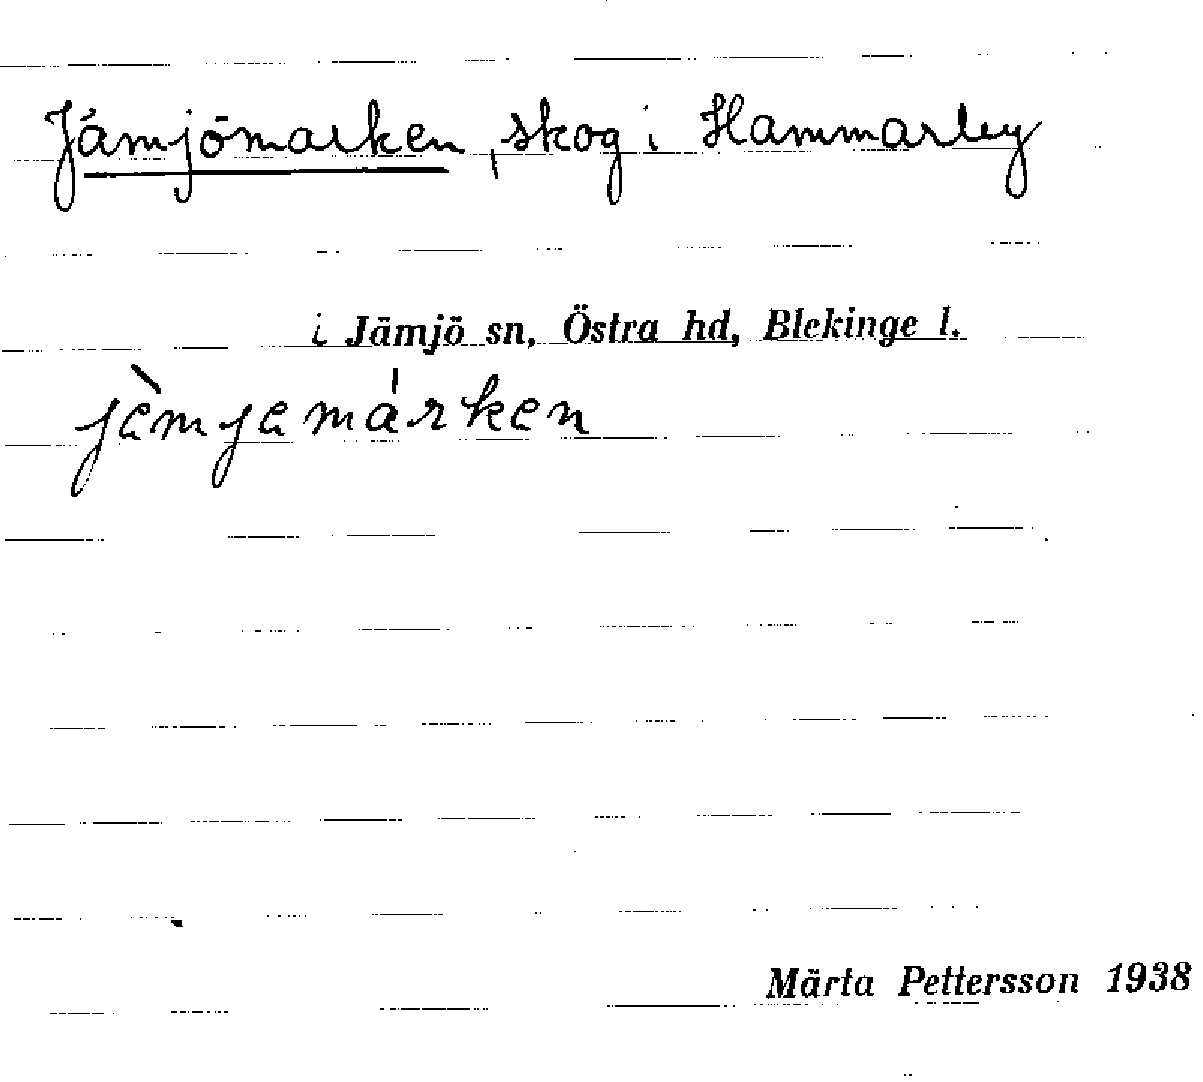 Jämjömarken, skog i Hammarby
i Jämjö sn, Östra hd, Blekinge l.
jèmjemárken
Märta Pettersson 1938